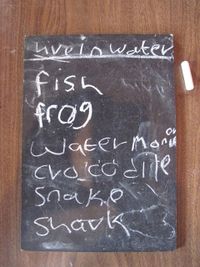 live in water
fish
frog
water monitor
crocodile
snake
shark